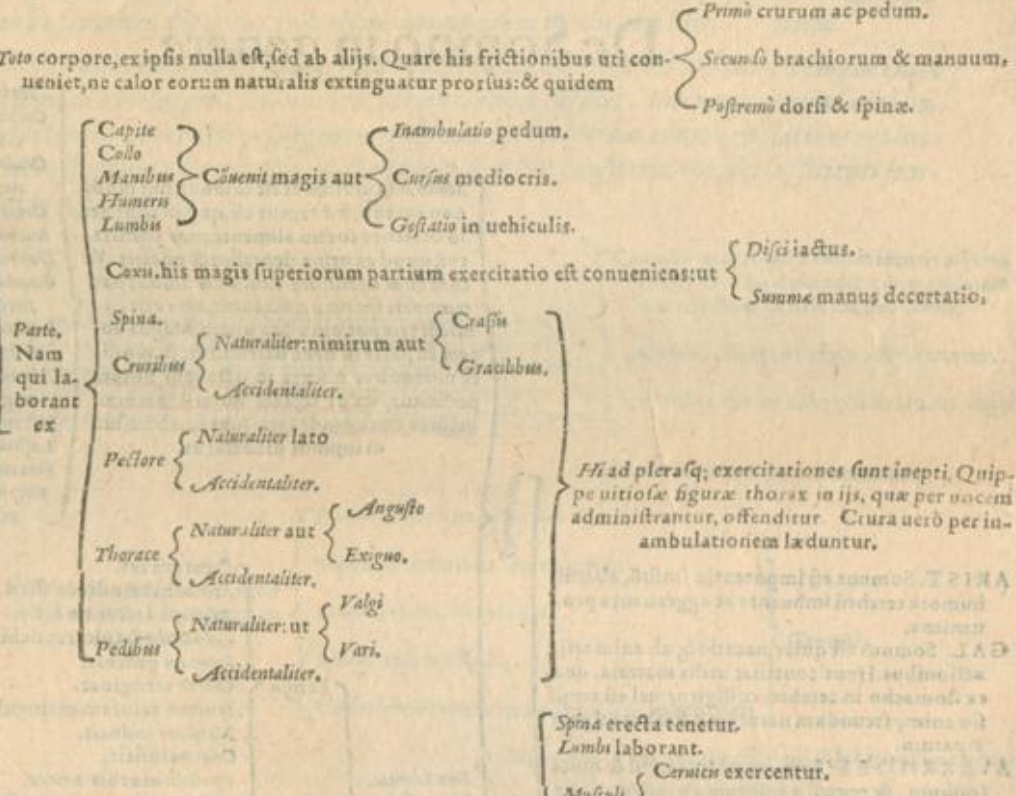 Primò crurum ac pedum.
Toto corpore, ex ipſis nulla eſt, ſed ab alijs. Quare his frictionibus uti con-
Secundò brachiorum & manuum,
ueniet, ne calor eorum naturalis extinguatur prorſus: & quidem
Poſtremò dorſi & ſpinæ.
Capite
Collo
Manibus
Humeris
Lumbis
Cõuenit magis aut
Inambulatio pedum.
Curſus mediocris.
Geſtatio in uehiculis.
Coxis. his magis ſuperiorum partium exercitatio eſt conueniens: ut
Diſci iactus.
Summæ manus decertatio,
Parte.
Nam
qui la-
borant
ex
Spina.
Cruribus
Naturaliter: nimirum aut
Craſsis
Gracilibus.
Accidentaliter.
Pectore
Naturaliter lato
Accidentaliter.
Thorace
Naturaliter aut
Anguſto
Exiguo.
Accidentaliter.
Pedibus
Naturaliter: ut
Valgi
Vari.
Accidentaliter.
Hi ad pleraſq; exercitationes ſunt inepti. Quip-
pe uitioſæ figuræ thorax in ijs, quæ per uocem
adminiſtrantur, offenditur Crura uerò per in-
ambulationem læduntur.
Spina erecta tenetur.
Lumbi laborant.
Ceruicis exercentur.
Muſculi